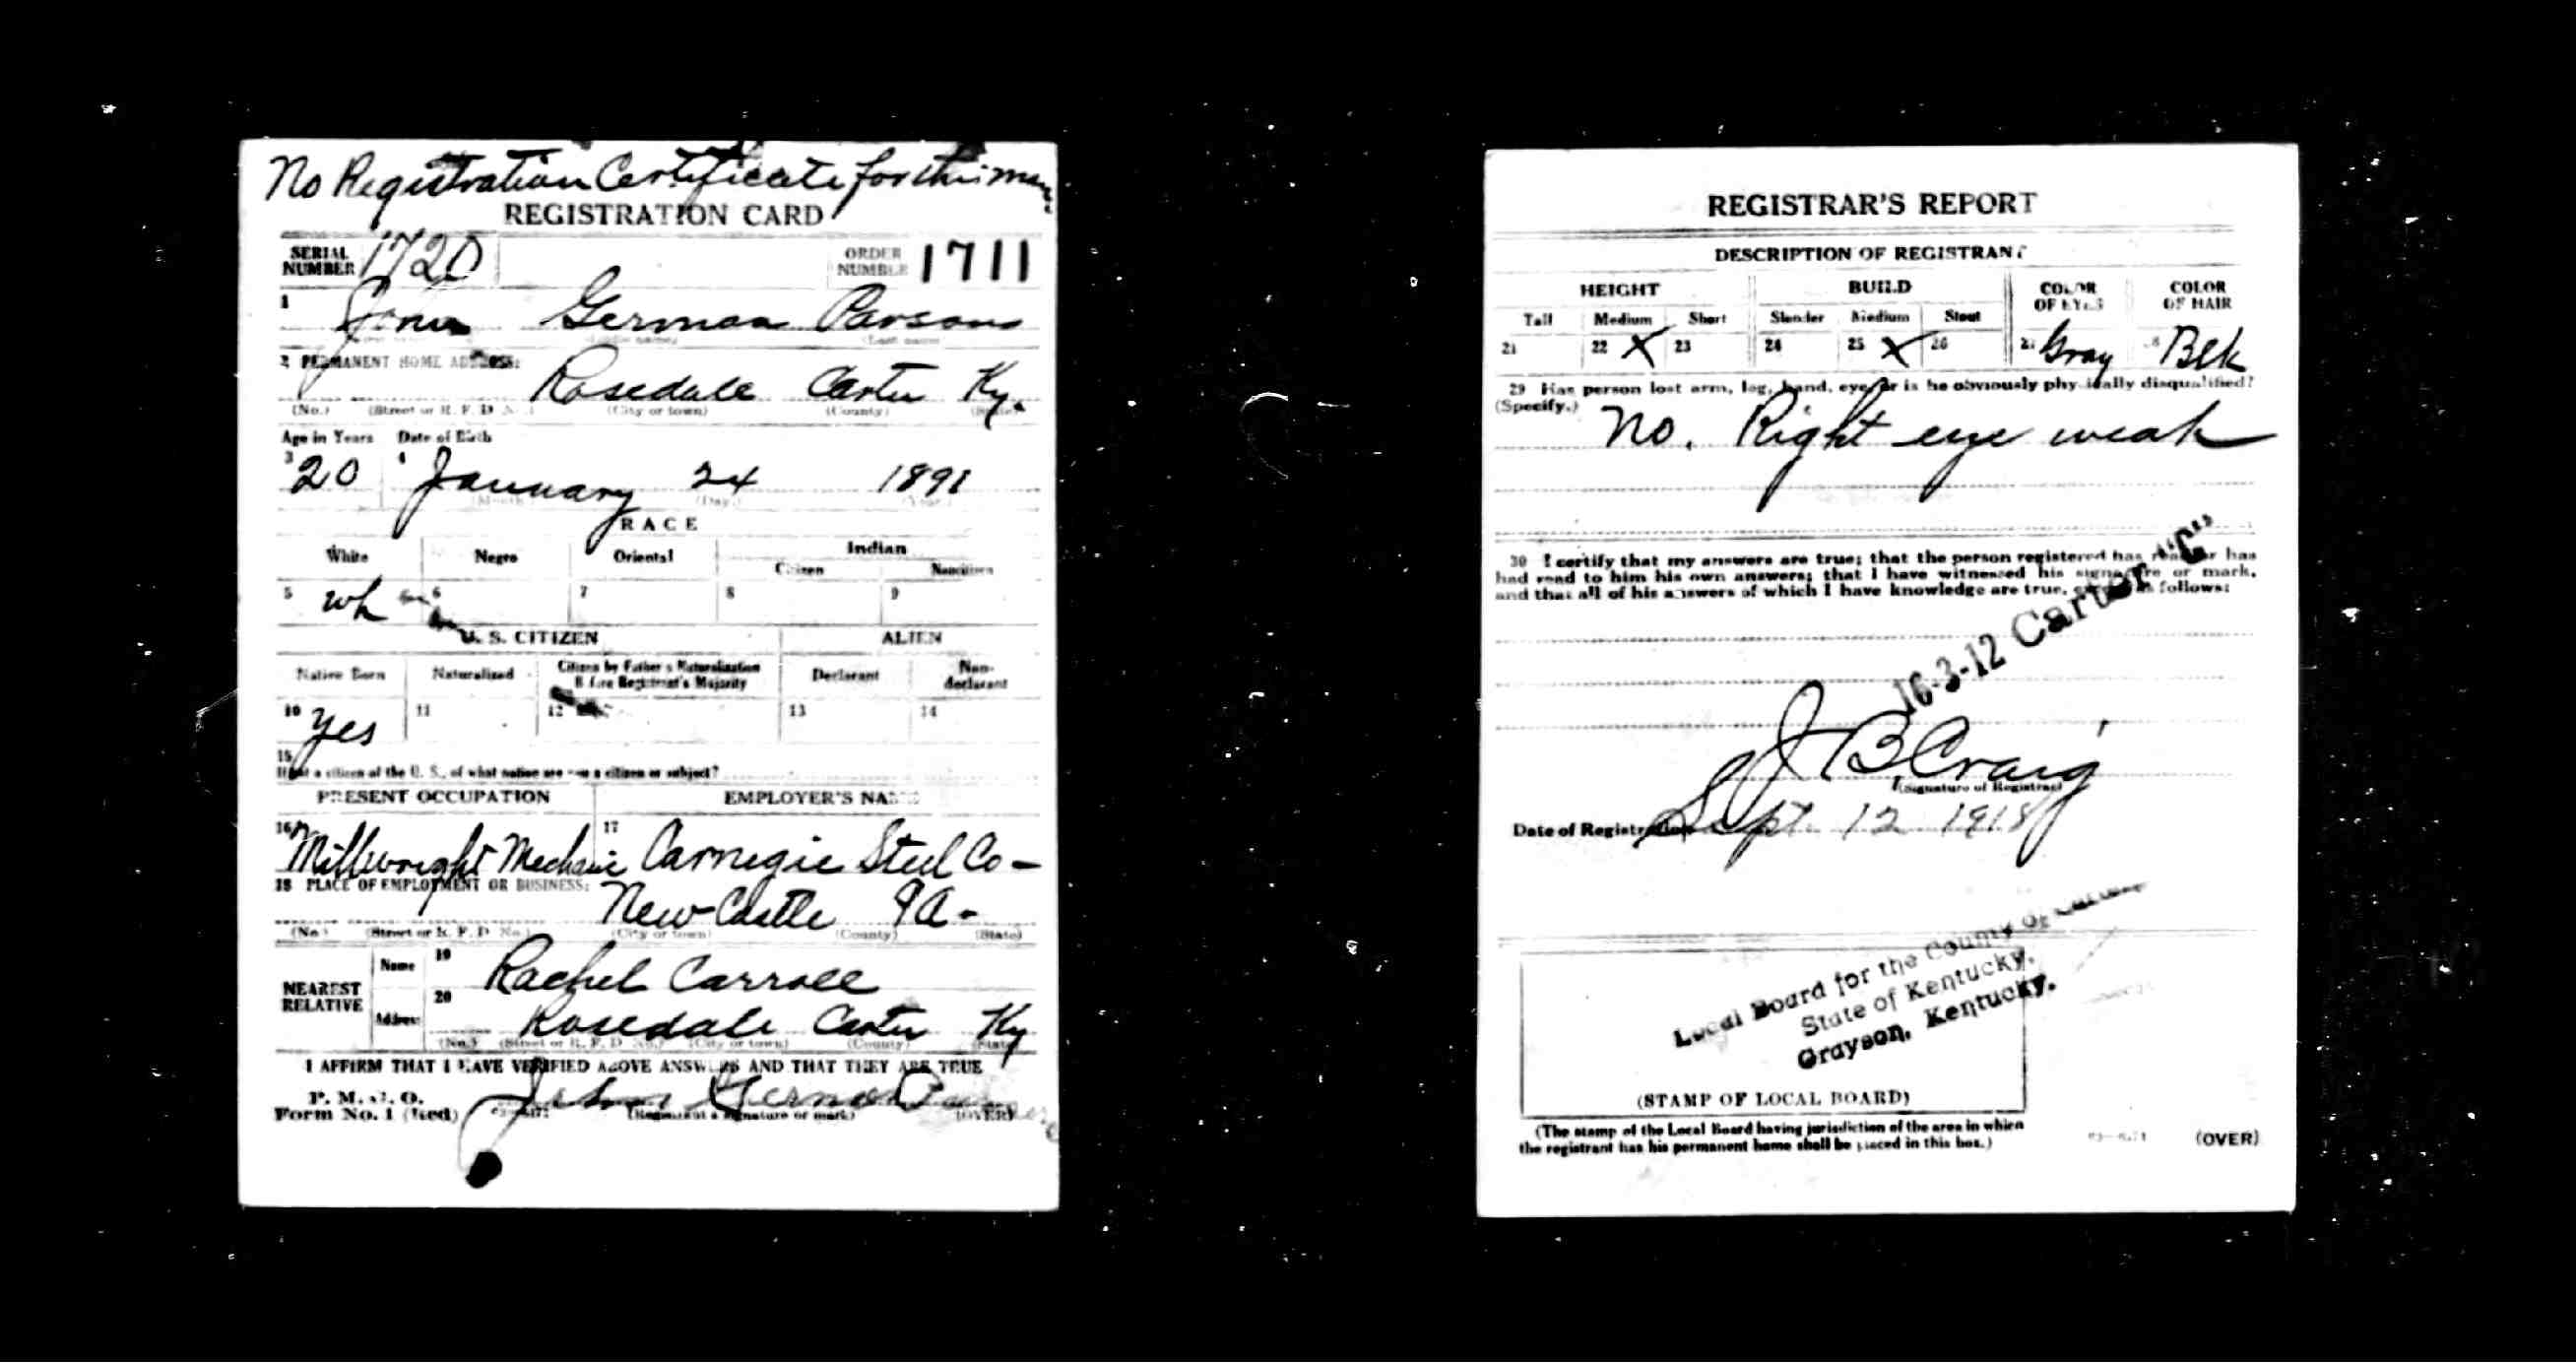 No Registration Certificate for this man.
REGISTRATION CARD
SERIAL NUMBER 1720 ORDER NUMBER 1711
1 John German Parsons
2 PERMANENT HOME ADDRESS:
Rosedale Carter Ky.
(No.) (Street or R. F. D. No.) (City or town) (County) (State)
Age in Years Date of Birth
3 20 4 January 24 1898
(Month) (Day) (Year)
RACE
White Negro Oriental Indian
Citizen Noncitizen
5 wh 6 7 8 9
U. S. CITIZEN ALIEN
Native Born Naturalized Citizen by Father's Naturalization Before Registrant's Majority Declarant Non-declarant
10 yes 11 12 13 14
15
If not a citizen of the U. S., of what nation are you a citizen or subject?
PRESENT OCCUPATION EMPLOYER'S NAME
16 Millwright Mechanic 17 Carnegie Steel Co -
18 PLACE OF EMPLOYMENT OR BUSINESS:
New Castle Pa -
(No.) (Street or R. F. D. No.) (City or town) (County) (State)
NEAREST RELATIVE
Name 19 Rachel Carroll
Address 20 Rosedale Carter Ky
(No.) (Street or R. F. D. No.) (City or town) (County) (State)
I AFFIRM THAT I HAVE VERIFIED ABOVE ANSWERS AND THAT THEY ARE TRUE
P. M. G. O.
Form No. 1 (Red) John German
(Registrant's signature or mark) (OVER)
REGISTRAR'S REPORT
DESCRIPTION OF REGISTRANT
HEIGHT BUILD COLOR OF EYES COLOR OF HAIR
Tall Medium Short Slender Medium Stout
21 22 X 23 24 25 X 26 27 Gray 28 Blk
29 Has person lost arm, leg, hand, eye, or is he obviously physically disqualified?
(Specify.) No. Right eye weak
30 I certify that my answers are true; that the person registered has read or has
had read to him his own answers; that I have witnessed his signature or mark,
and that all of his answers of which I have knowledge are true, except as follows:
16-3-12 Carter "C"
J B. Craig
(Signature of Registrar)
Date of Registration Sept. 12 1918
Local Board for the County of Carter,
State of Kentucky,
Grayson, Kentucky.
(STAMP OF LOCAL BOARD)
(The stamp of the Local Board having jurisdiction of the area in which
the registrant has his permanent home shall be placed in this box.)
(OVER)